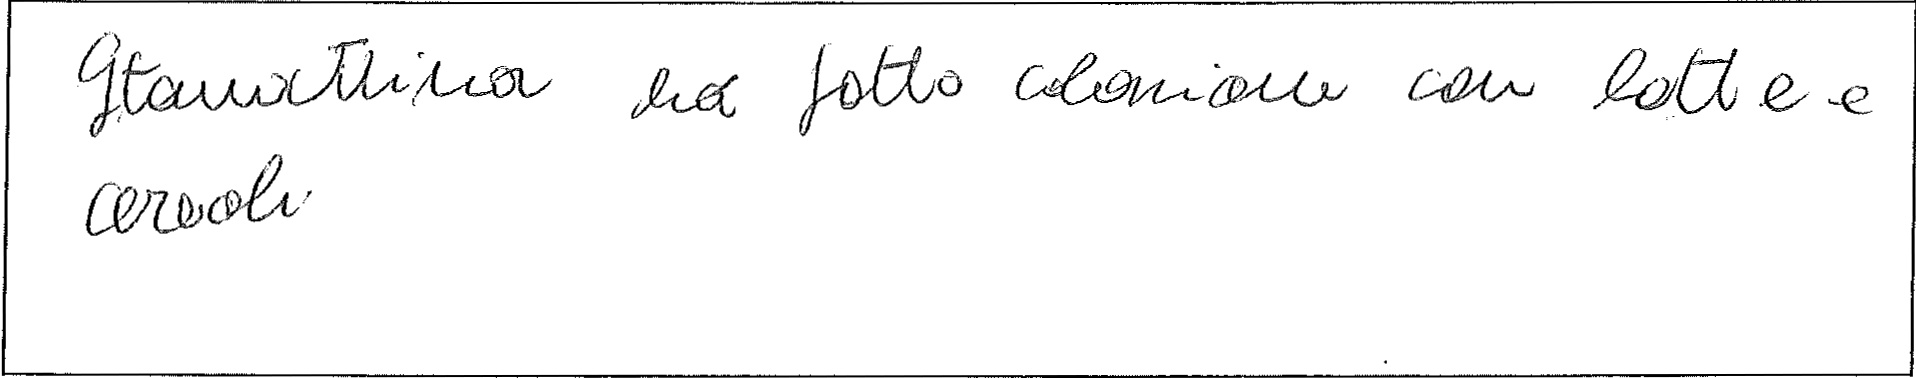 Stamattina ha fatto colazione con latte e
cereali